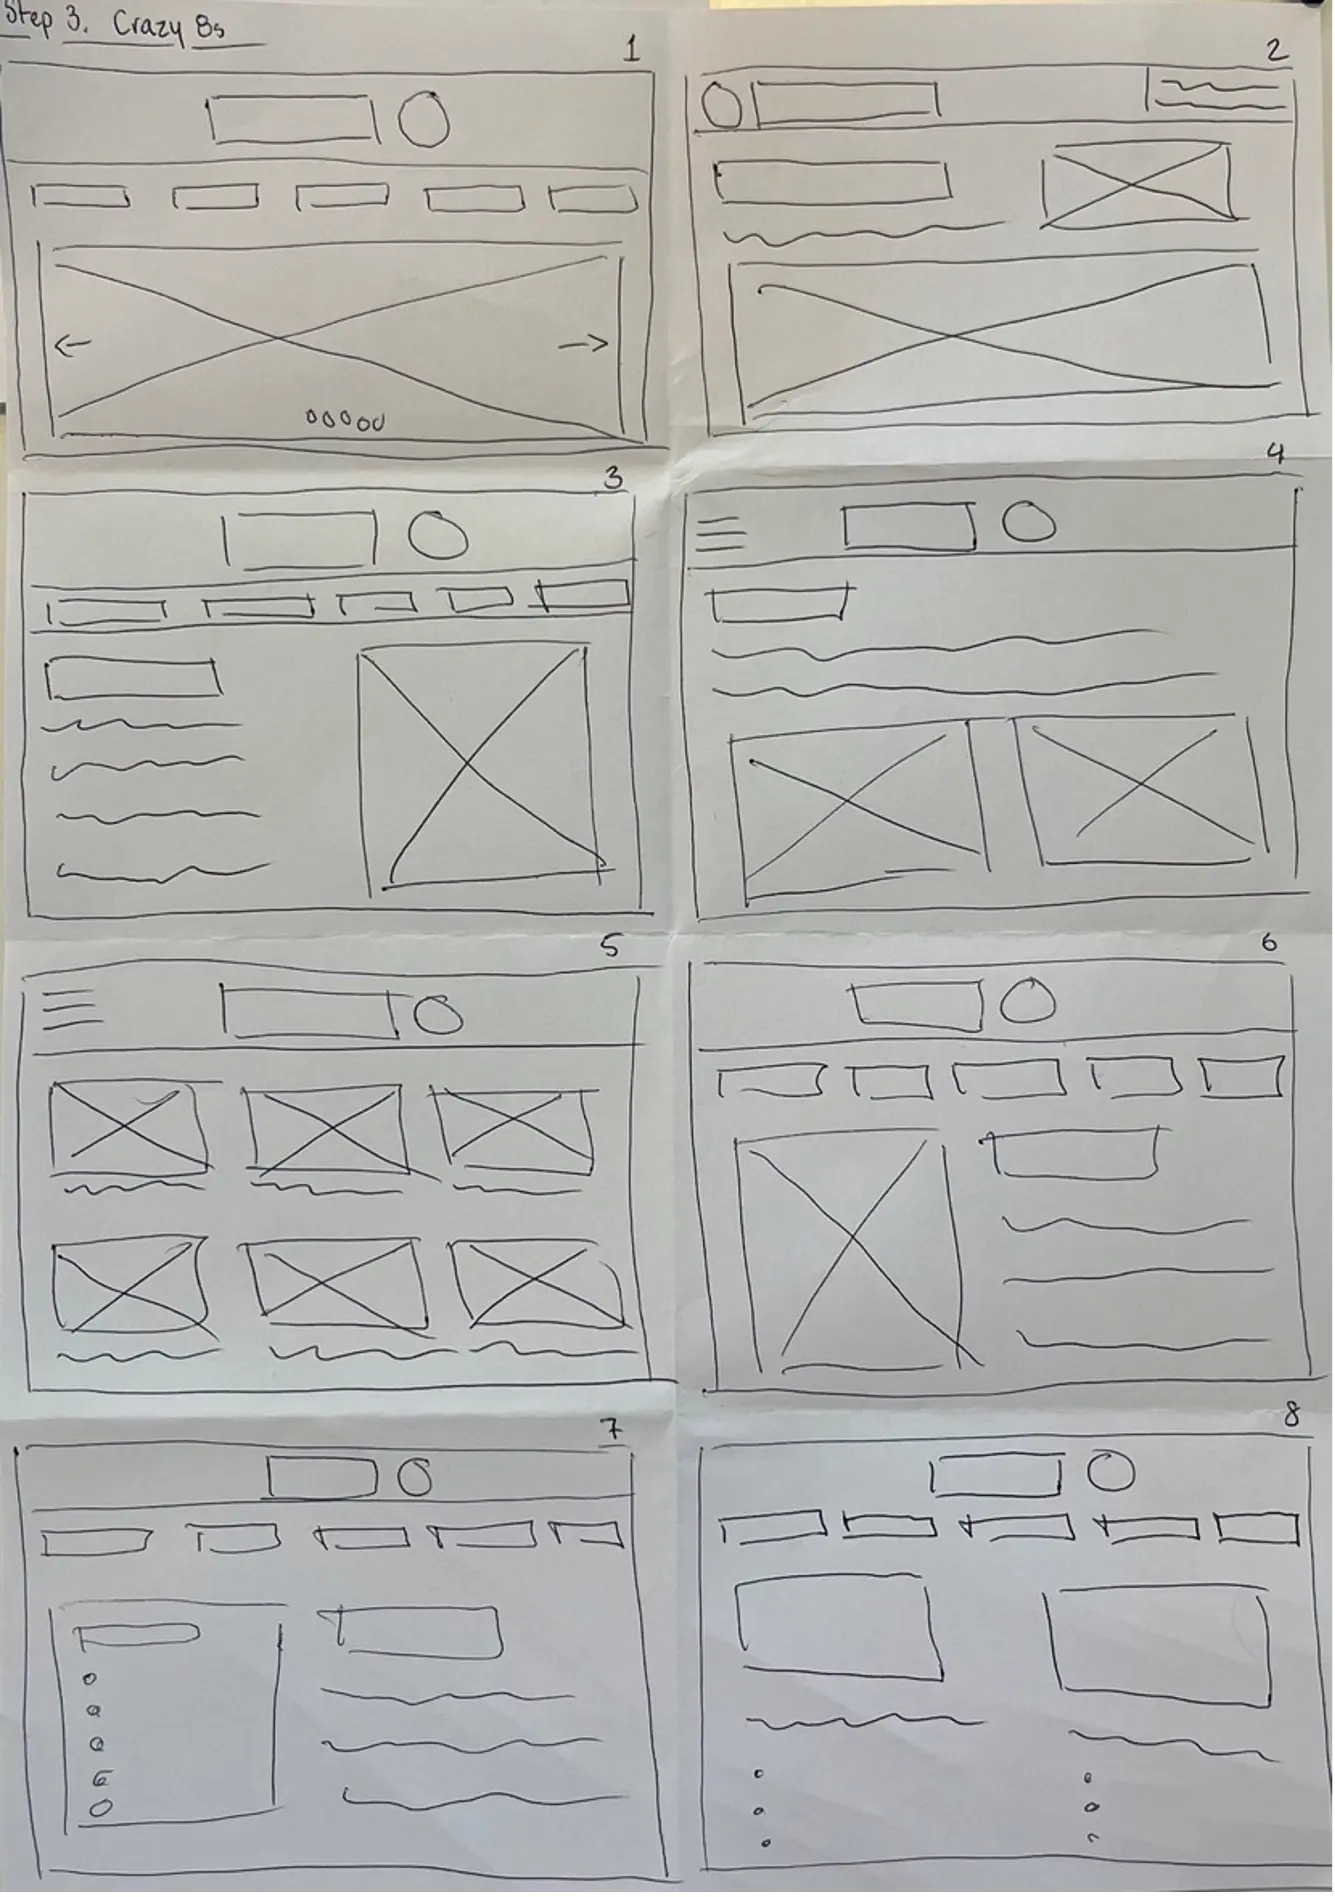 Step 3. Crazy 8s
1
2
3
4
5
6
7
8